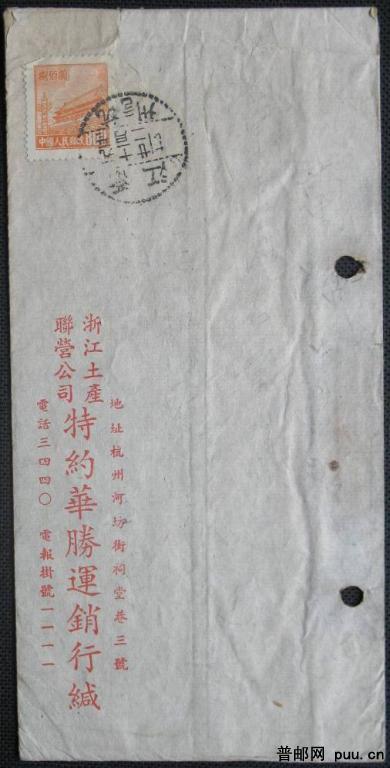 捌佰圓
中國人民郵政
800
浙江土產
聯營公司
特約華勝運銷行緘
地址杭州河坊街祠堂巷三號
電話三四四〇 電報掛號一一一一
普邮网 puu.cn